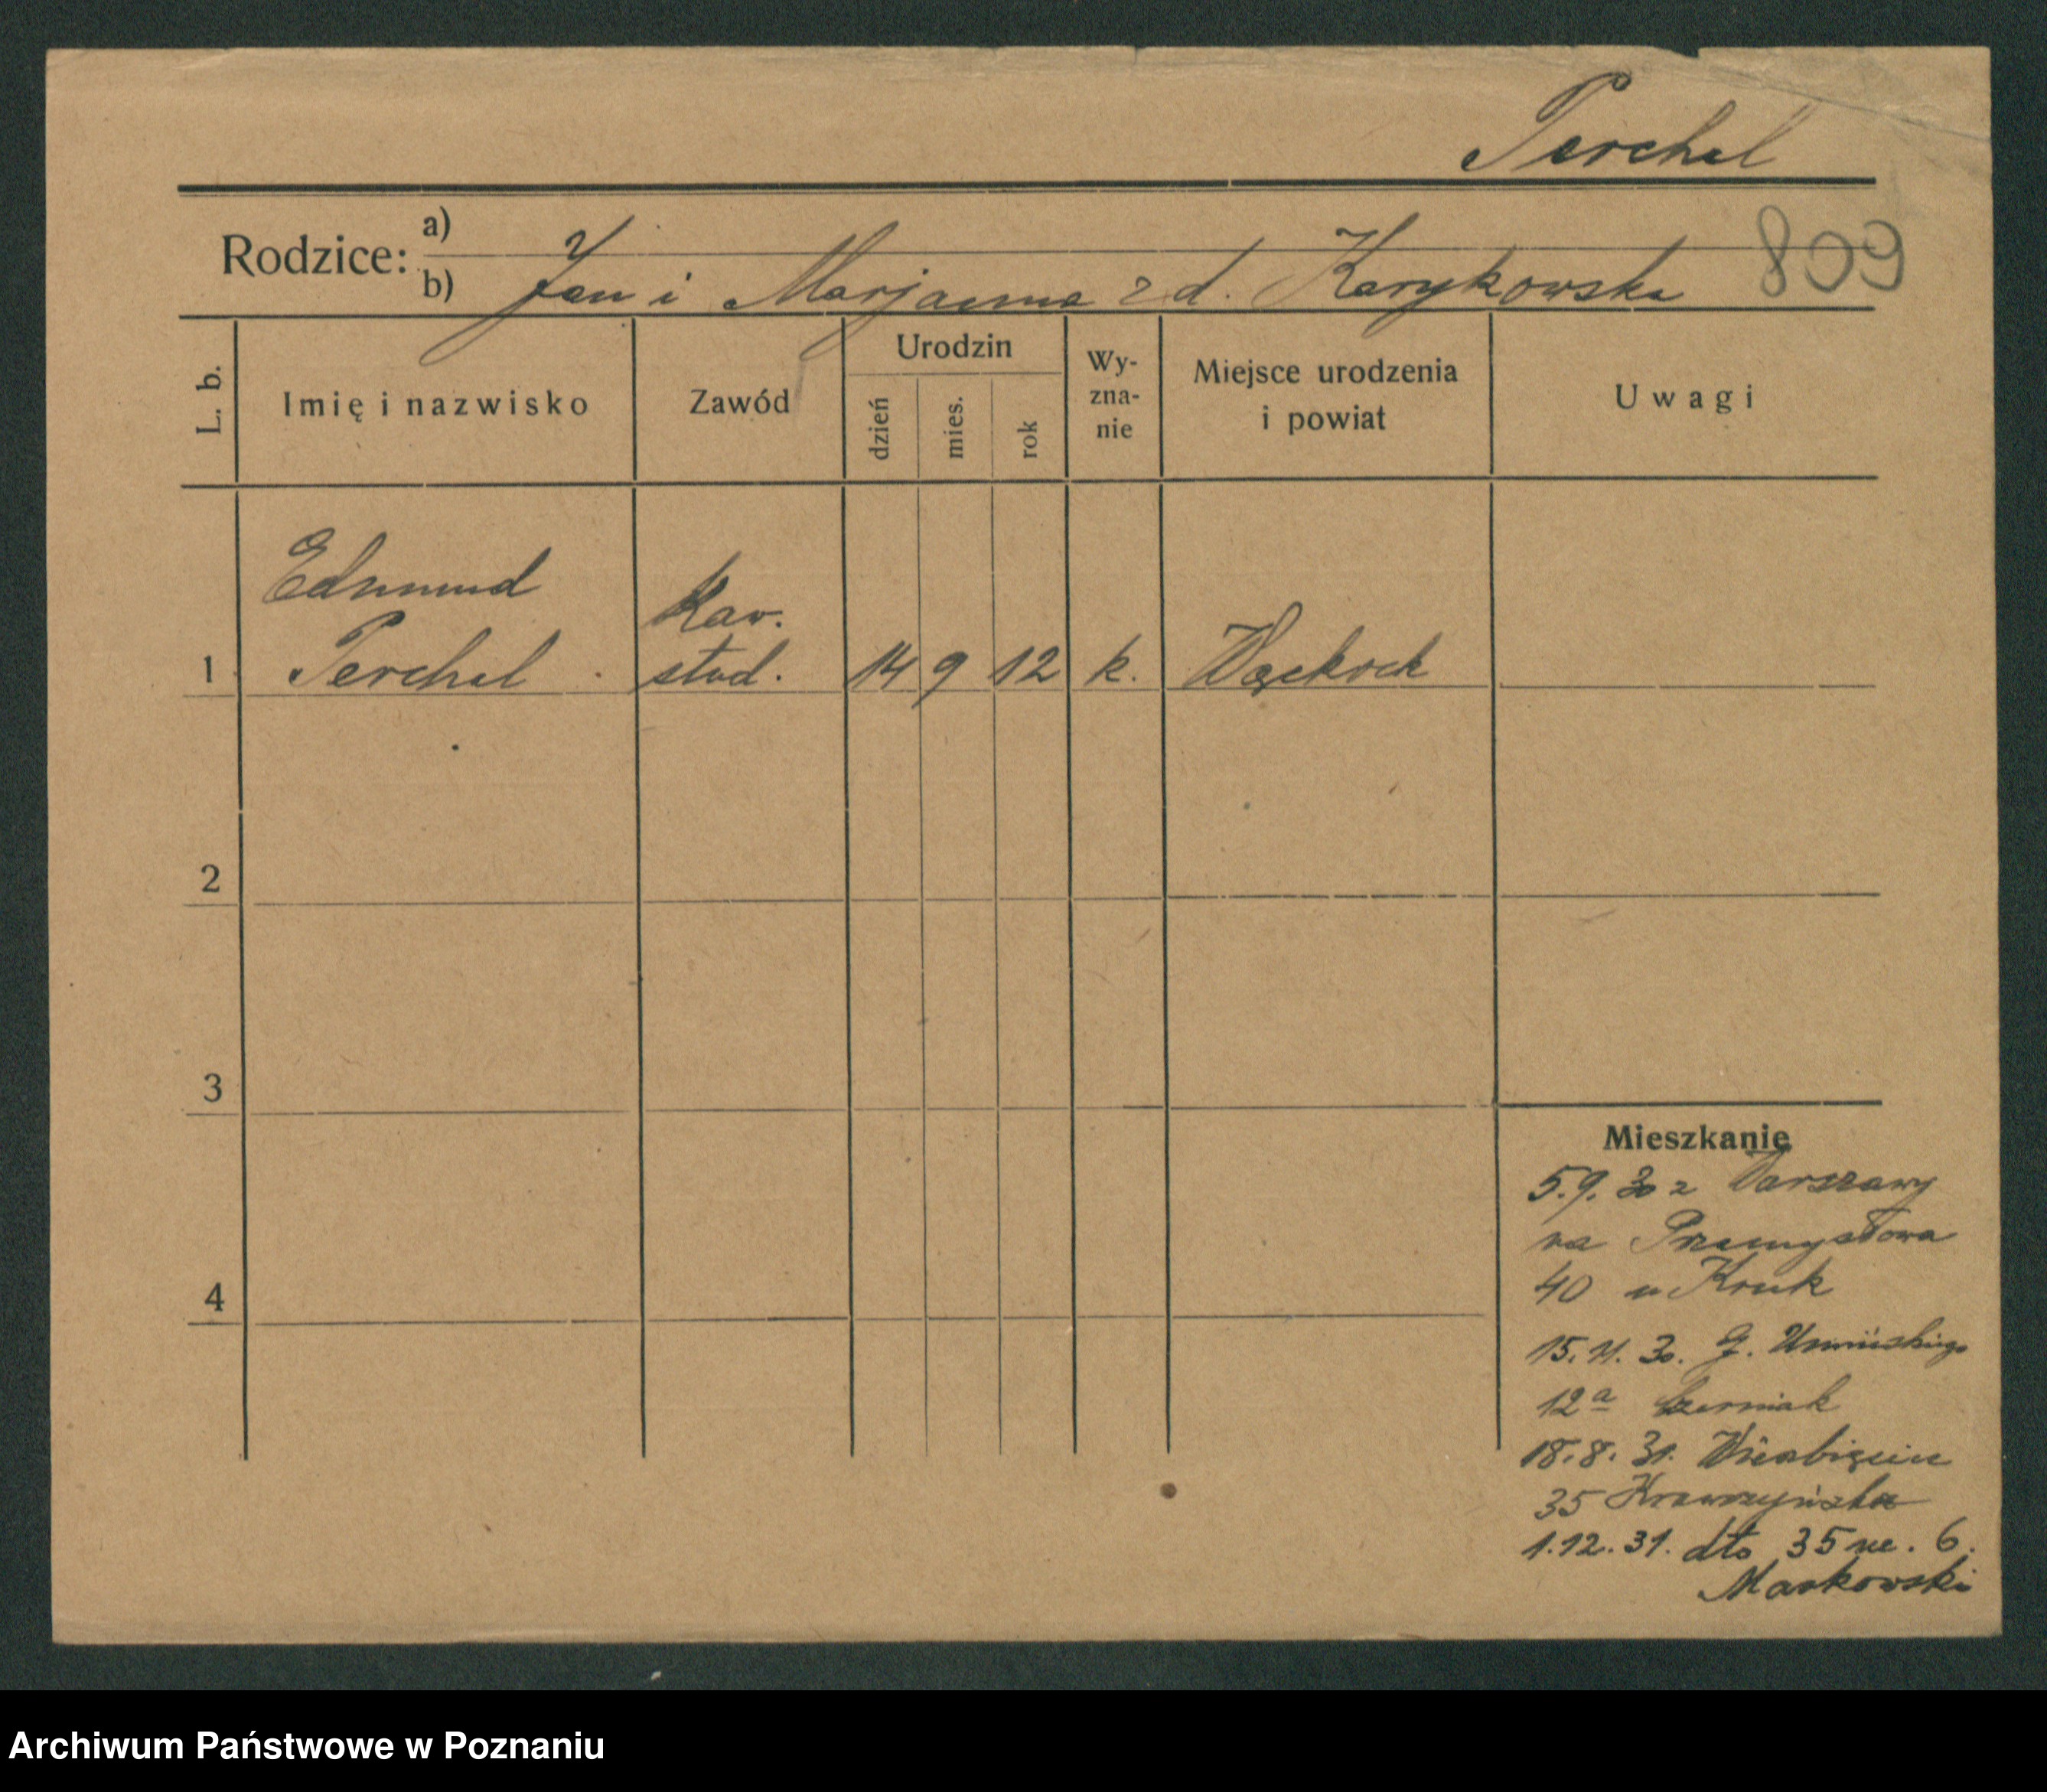 Perchel
809
Rodzice: a)
b) Jan i Marjanna z d. Karykowska
L. b.
Imię i nazwisko
Zawód
Urodzin
dzień
mies.
rok
Wy-
zna-
nie
Miejsce urodzenia
i powiat
Uwagi
Edmund
Kaw.
1 Perchel stud. 14 9 12 k. Wąchock
2
3
4
Mieszkanie
5.9.30 z Warszawy
na Przemysłowa
40 u Kruk
15.11.30. G. Umińskiego
12a Czerniak
18.8.31. Wierzbięcice
35 Krawczyńska
1.12.31. dto 35 m. 6.
Markowski
Archiwum Państwowe w Poznaniu